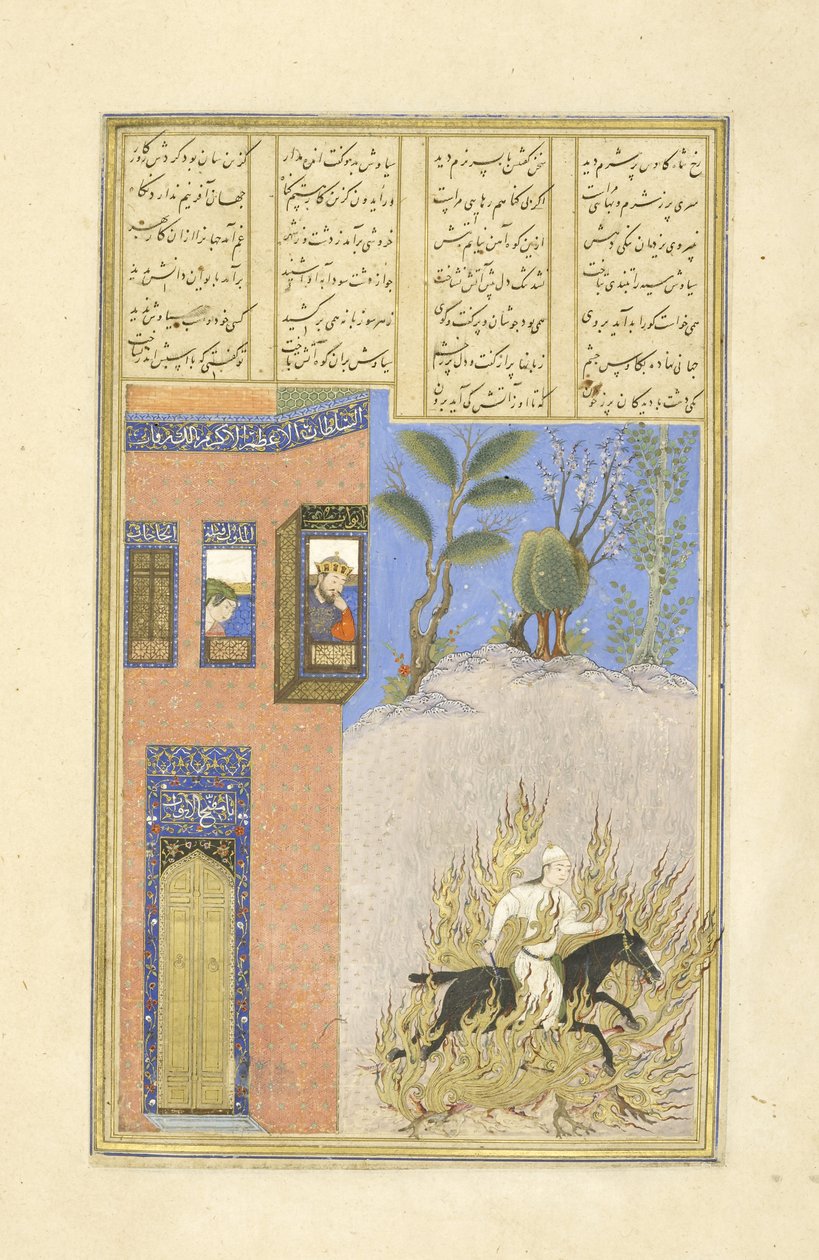 رخ شاه کاوس پر شرم دید سخن گفتنش با پسر نرم دید سیاوش بدو گفت انده مدار کزین سان بود گردش روزگار
سری پر ز شرم و بهائی مراست اگر بی گناهم رهایی مراست ور ایدون که زین کار هستم گناه جهان آفرینم ندارد نگاه
به نیروی یزدان نیکی دهش ازین کوه نیابم تپش خروشی برآمد ز دشت و ز شهر غم آمد جهانرا ازان کار بهر
سیاوش سیه را بتندی بتاخت نشد تنگ دل آتش چو از دشت سودابه آوا شنید برآمد بایوان و آتش بدید
همی خواست کورا بد آید بروی همی بود جوشان و پر گفت و گوی ز هر سو زبانه همی برکشید کسی خود و اسب سیاوش ندید
جهانی نهاده بکاوس چشم زبانها پر از گفت و دل پر ز خشم سیاوش بران کوه آتش بتاخت تو گفتی که با اسپش اندر بساخت
یکی دشت با دیدگان پر ز خون که تا او ز آتش کی آید برون
السلطان الاعظم الاکرم مالک رقاب
الحاجات
یا مفتح الابواب